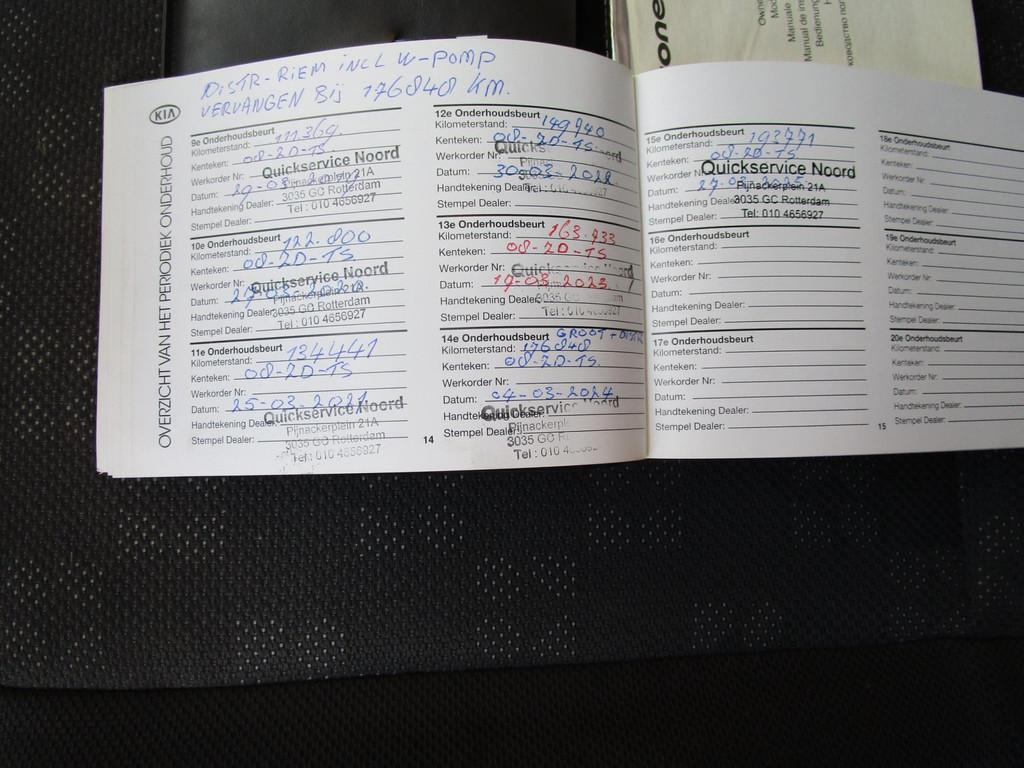 DiSTR-RiEM iNCL W-POMP
VERVANGEN Bij 176848 KM.
KIA
OVERZICHT VAN HET PERIODIEK ONDERHOUD
9e Onderhoudsbeurt
Kilometerstand: 111.369.
Kenteken: 08-ZD-TS
Werkorder Nr:
Quickservice Noord
Datum:
Pijnackerplein 21A
Handtekening Dealer:
3035 GC Rotterdam
Stempel Dealer:
Tel: 010 4656927
10e Onderhoudsbeurt
Kilometerstand: 122.800
Kenteken: 08-ZD-TS
Werkorder Nr:
Quickservice Noord
Datum:
Pijnackerplein 21A
Handtekening Dealer:
3035 GC Rotterdam
Stempel Dealer:
Tel: 010 4656927
11e Onderhoudsbeurt
Kilometerstand: 134441
Kenteken: 08-ZD-TS
Werkorder Nr:
Datum: 25-03-2021
Quickservice Noord
Handtekening Dealer:
Pijnackerplein 21A
Stempel Dealer:
3035 GC Rotterdam
Tel: 010 4656927
12e Onderhoudsbeurt
Kilometerstand: 149940
Kenteken: 08-ZD-TS
Werkorder Nr:
Datum: 30-03-2022
Handtekening Dealer:
Stempel Dealer:
13e Onderhoudsbeurt
Kilometerstand: 163.933
Kenteken: 08-ZD-TS
Werkorder Nr:
Quickservice Noord
Datum: 17-03-2023
Handtekening Dealer:
3035 GC
Stempel Dealer:
14e Onderhoudsbeurt GROOT +
Kilometerstand: 176848
Kenteken: 08-ZD-TS
Werkorder Nr:
Datum: 04-03-2024
Quickservice Noord
Handtekening Dealer:
Stempel Dealer:
3035 GC
Tel: 010
14
15e Onderhoudsbeurt
Kilometerstand: 193771
Kenteken: 08-ZD-TS
Werkorder Nr:
Quickservice Noord
Datum: 27-03-2025
Pijnackerplein 21A
Handtekening Dealer:
3035 GC Rotterdam
Stempel Dealer:
Tel: 010 4656927
16e Onderhoudsbeurt
Kilometerstand:
Kenteken:
Werkorder Nr:
Datum:
Handtekening Dealer:
Stempel Dealer:
17e Onderhoudsbeurt
Kilometerstand:
Kenteken:
Werkorder Nr:
Datum:
Handtekening Dealer:
Stempel Dealer:
15
18e Onderhoudsbeurt
Kilometerstand:
Kenteken:
Werkorder Nr:
Datum:
Handtekening Dealer:
Stempel Dealer:
19e Onderhoudsbeurt
Kilometerstand:
Kenteken:
Werkorder Nr:
Datum:
Handtekening Dealer:
Stempel Dealer:
20e Onderhoudsbeurt
Kilometerstand:
Kenteken:
Werkorder Nr:
Datum:
Handtekening Dealer:
Stempel Dealer:
one
Manuale
Manual de in
Bedienung